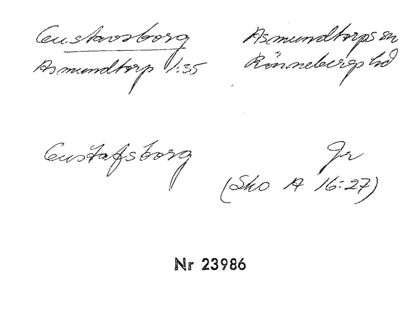 Gustavsborg Asmundtorps sn
Asmundtorp 1:35 Rönnebergs hd
Gustafsborg Gr
(Sko A 16:27)
Nr 23986